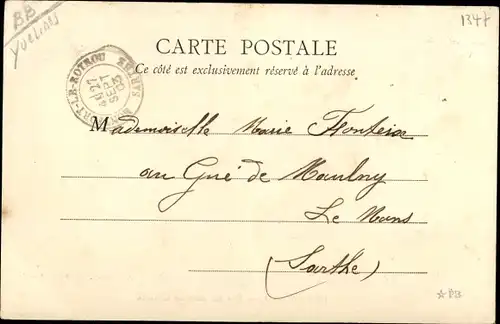 BB
YVELINES
1347
CARTE POSTALE
Ce côté est exclusivement réservé à l'adresse
MONTFORT-LE-ROTROU
SARTHE
27
SEPT
03
Mademoiselle Marie Fonteix
au Gué de Maulny
Le Mans
(Sarthe)
☆BB